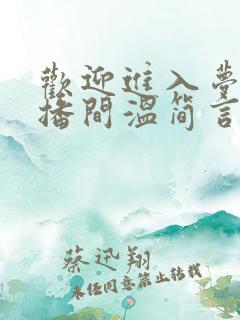 歡迎進入夢
播間溫简言
蔡迅翔
未经同意禁止转载